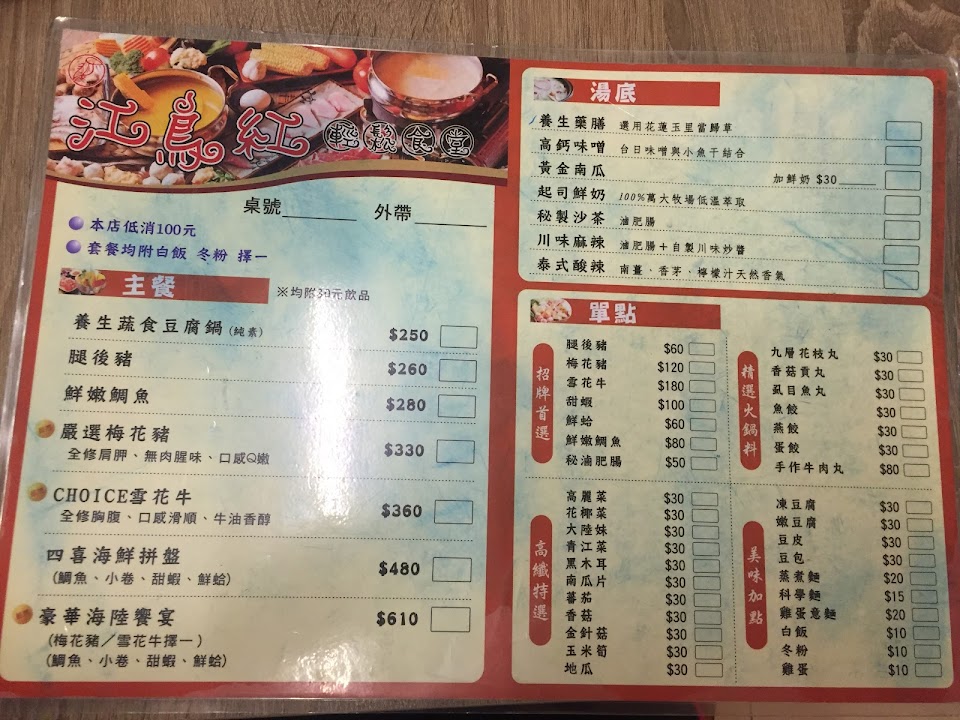 江鳥紅 輕鬆食堂
桌號______ 外帶______
本店低消100元
套餐均附白飯 冬粉 擇一
主餐 ※均附30元飲品
養生蔬食豆腐鍋(純素) $250
腿後豬 $260
鮮嫩鯛魚 $280
嚴選梅花豬 $330
全修肩胛、無肉腥味、口感Q嫩
CHOICE雪花牛 $360
全修胸腹、口感滑順、牛油香醇
四喜海鮮拼盤 $480
(鯛魚、小卷、甜蝦、鮮蛤)
豪華海陸饗宴 $610
(梅花豬/雪花牛擇一)
(鯛魚、小卷、甜蝦、鮮蛤)
湯底
養生藥膳 選用花蓮玉里當歸草
高鈣味噌 台日味噌與小魚干結合
黃金南瓜 加鮮奶 $30______
起司鮮奶 100%萬大牧場低溫萃取
秘製沙茶 滷肥腸
川味麻辣 滷肥腸+自製川味炒醬
泰式酸辣 南薑、香茅、檸檬汁天然香氣
單點
招牌首選
腿後豬 $60
梅花豬 $120
雪花牛 $180
甜蝦 $100
鮮蛤 $60
鮮嫩鯛魚 $80
秘滷肥腸 $50
精選火鍋料
九層花枝丸 $30
香菇貢丸 $30
虱目魚丸 $30
魚餃 $30
燕餃 $30
蛋餃 $30
手作牛肉丸 $80
高纖特選
高麗菜 $30
花椰菜 $30
大陸妹 $30
青江菜 $30
黑木耳 $30
南瓜片 $30
蕃茄 $30
香菇 $30
金針菇 $30
玉米筍 $30
地瓜 $30
美味加點
凍豆腐 $30
嫩豆腐 $30
豆皮 $30
豆包 $30
蒸煮麵 $20
科學麵 $15
雞蛋意麵 $20
白飯 $10
冬粉 $10
雞蛋 $10